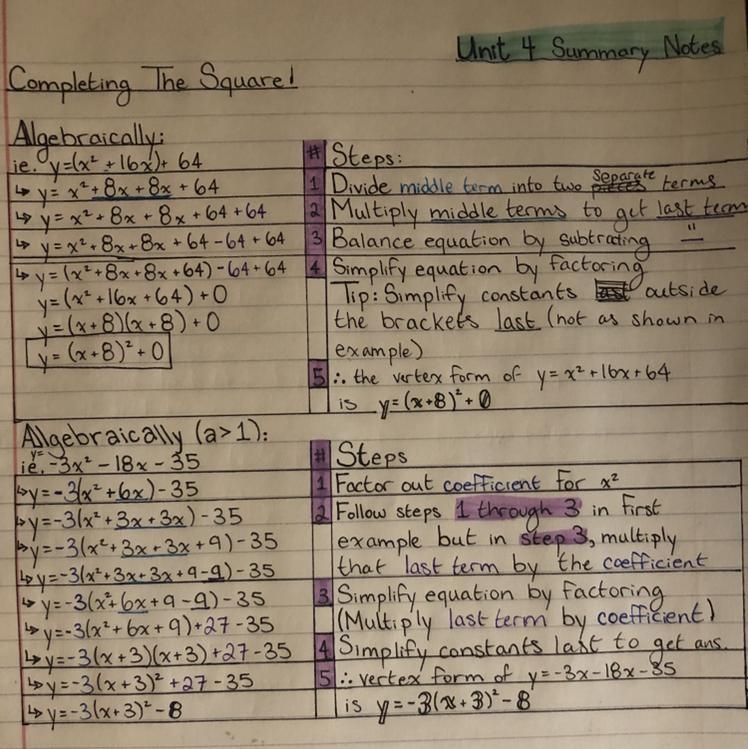 Unit 4 Summary Notes
Completing The Square!
Algebraically:
ie. y=(x² + 16x)+ 64
↳ y= x²+8x+8x+64
↳ y= x²+8x+8x+64+64
↳ y= x²+8x+8x+64-64+64
↳ y=(x²+8x+8x+64)-64+64
y=(x²+16x+64)+0
y=(x+8)(x+8)+0
y=(x+8)²+0
# Steps:
1 Divide middle term into two separate terms
2 Multiply middle terms to get last term
3 Balance equation by subtrating "
4 Simplify equation by factoring
Tip: Simplify constants outside
the brackets last (not as shown in
example)
5 ∴ the vertex form of y=x²+16x+64
is y=(x+8)²+0
Algebraically (a>1):
ie. y=-3x²-18x-35
↳y=-3(x²+6x)-35
↳y=-3(x²+3x+3x)-35
↳y=-3(x²+3x+3x+9)-35
↳y=-3(x²+3x+3x+9-9)-35
↳y=-3(x²+6x+9-9)-35
↳y=-3(x²+6x+9)+27-35
↳y=-3(x+3)(x+3)+27-35
↳y=-3(x+3)²+27-35
↳y=-3(x+3)²-8
# Steps
1 Factor out coefficient for x²
2 Follow steps 1 through 3 in first
example but in step 3, multiply
that last term by the coefficient
3 Simplify equation by factoring
(Multiply last term by coefficient)
4 Simplify constants last to get ans.
5 ∴ vertex form of y=-3x-18x-35
is y=-3(x+3)²-8